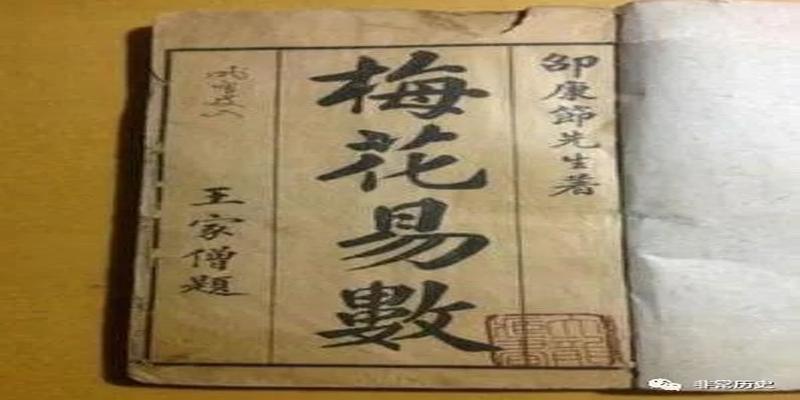 邵康節先生著
梅花易數
王家僧題
非常历史